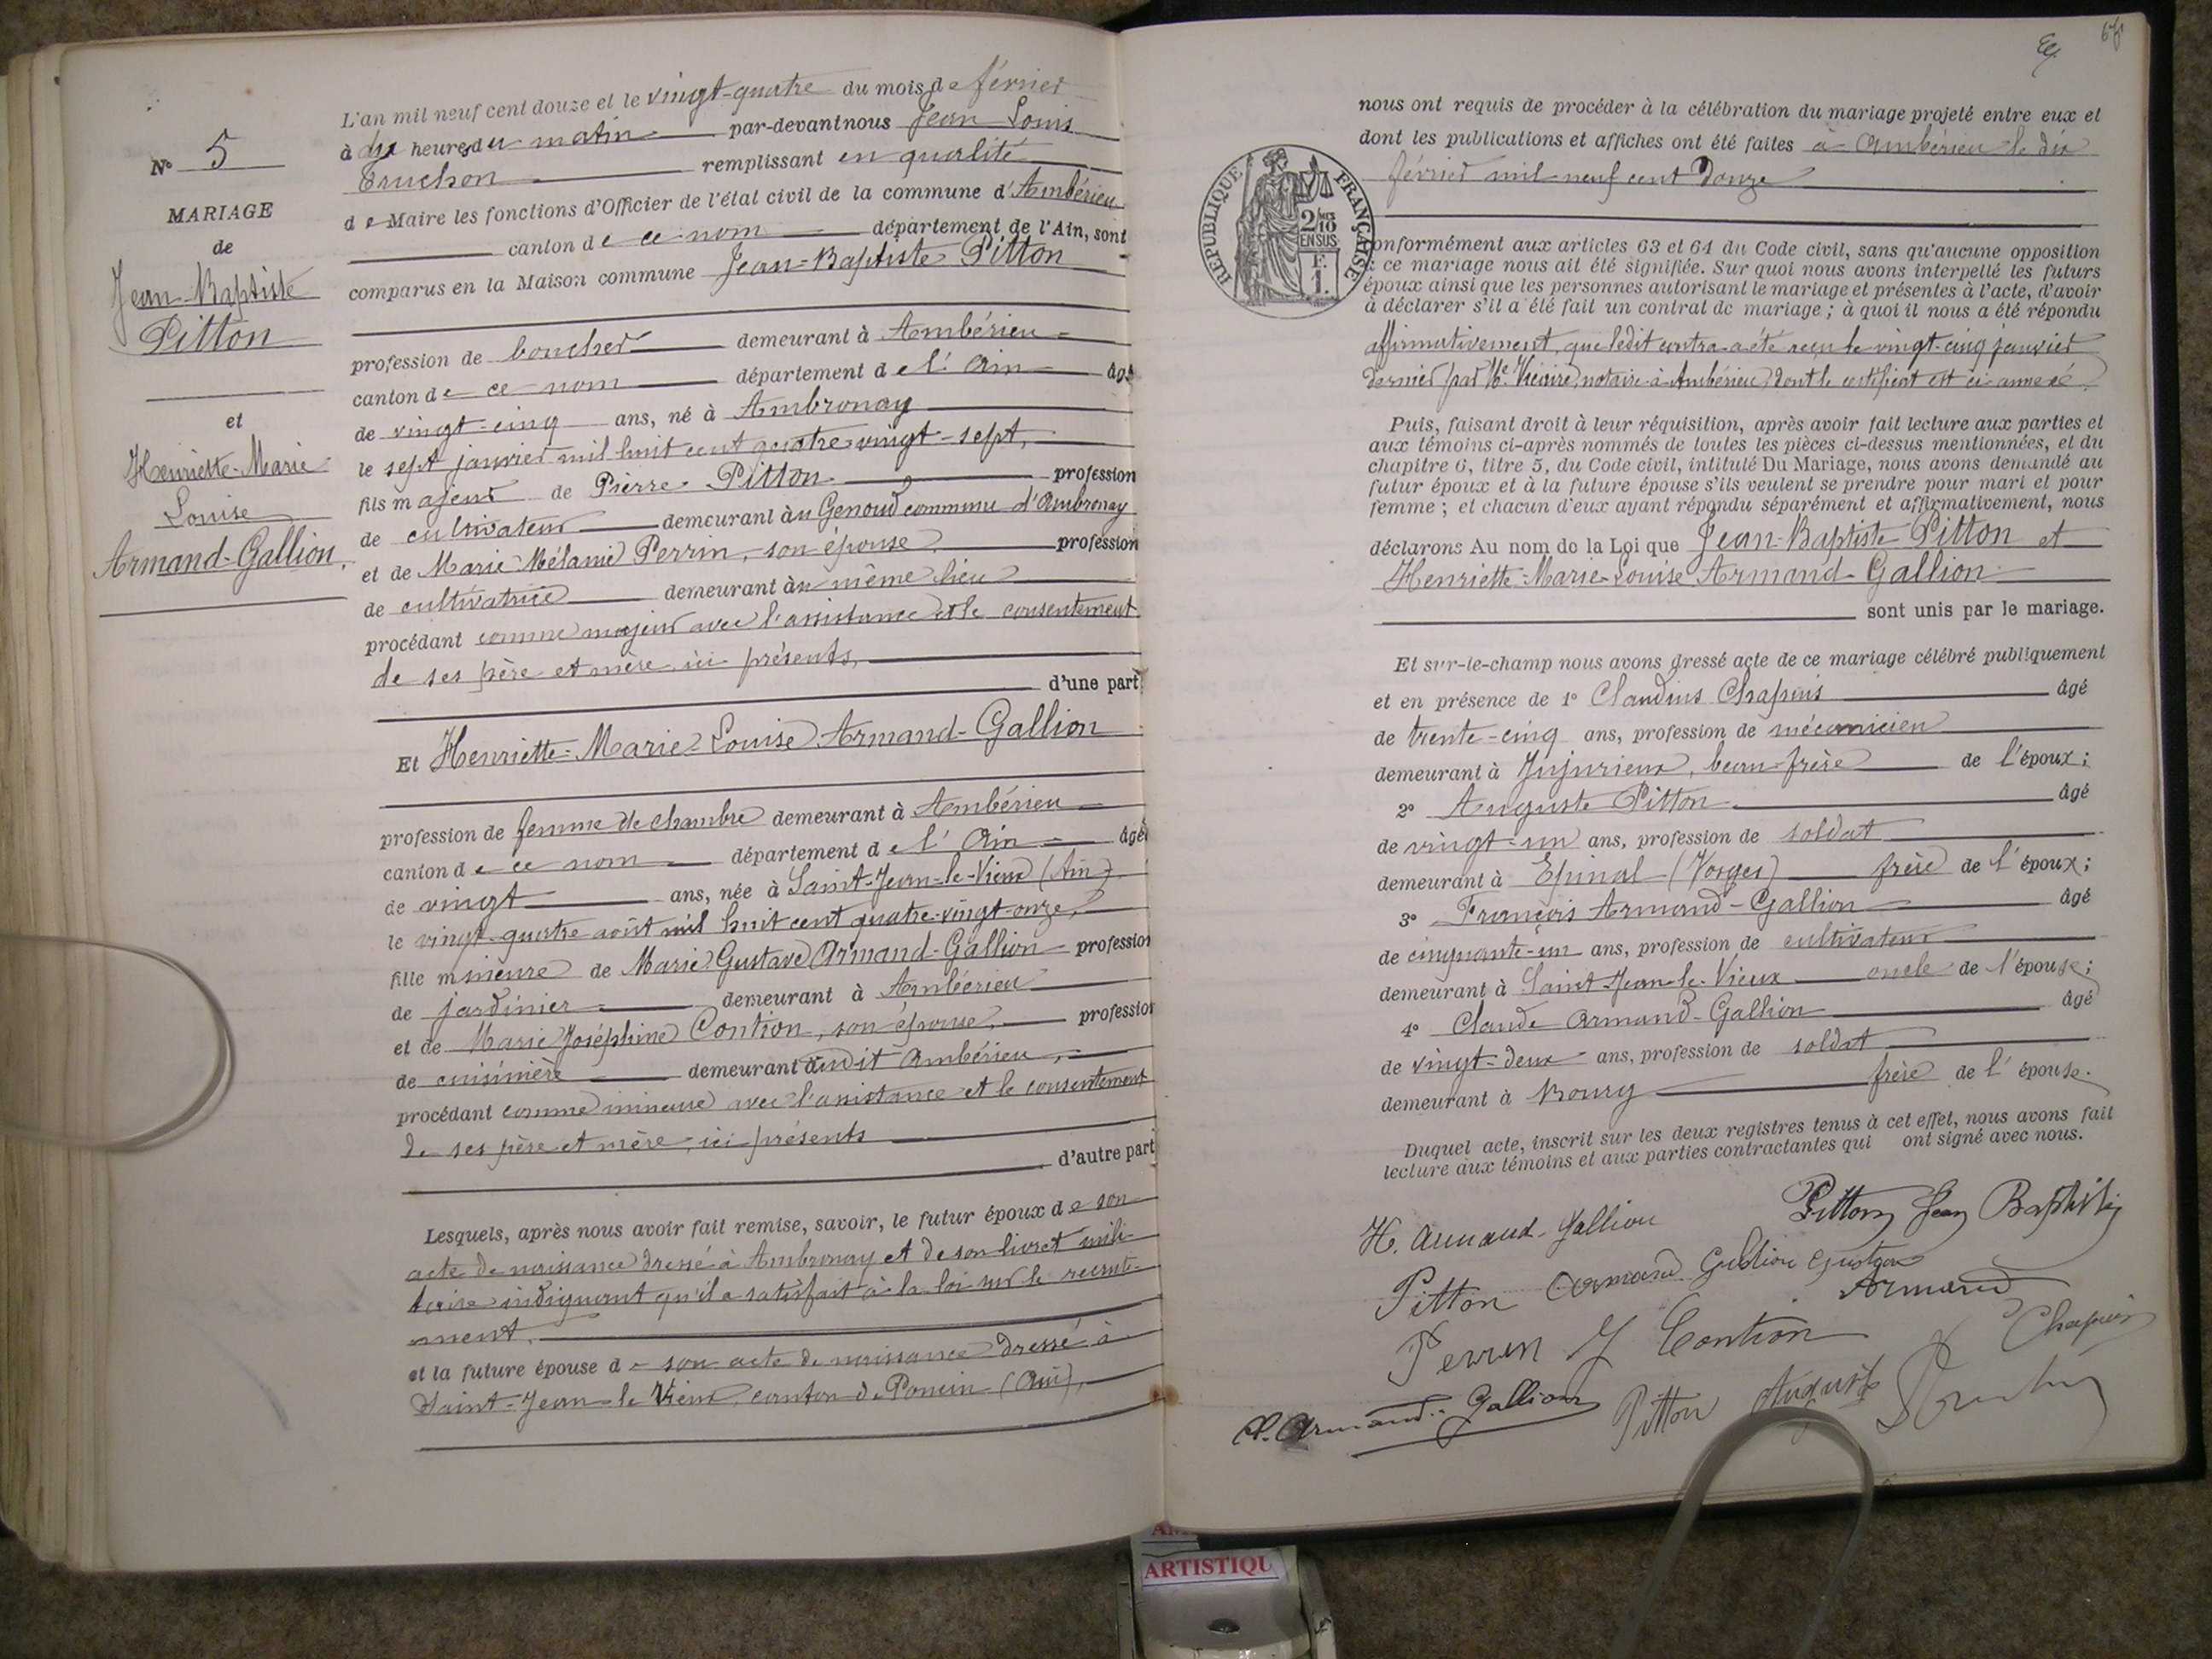 N° 5
MARIAGE
de
Jean-Baptiste
Pitton
et
Henriette-Marie
Louise
Armand-Gallion.
L'an mil neuf cent douze et le vingt-quatre du mois de février
à dix heures du matin par-devant nous Jean Louis
Truchon remplissant en qualité
de Maire les fonctions d'Officier de l'état civil de la commune d'Ambérieu
canton de ce nom département de l'Ain, sont
comparus en la Maison commune Jean-Baptiste Pitton
profession de boucher demeurant à Ambérieu
canton de ce nom département de l'Ain âgé
de vingt-cinq ans, né à Ambronay
le sept janvier mil huit cent quatre-vingt-sept,
fils majeur de Pierre Pitton profession
de cultivateur demeurant au Genoud commune d'Ambronay
et de Marie Mélanie Perrin, son épouse, profession
de cultivatrice demeurant au même lieu
procédant comme majeur avec l'assistance et le consentement
de ses père et mère, ici présents,
d'une part
Et Henriette-Marie-Louise Armand-Gallion
profession de femme de chambre demeurant à Ambérieu
canton de ce nom département de l'Ain âgée
de vingt ans, née à Saint-Jean-le-Vieux (Ain)
le vingt-quatre août mil huit cent quatre-vingt-onze,
fille mineure de Marie Gustave Armand-Gallion profession
de jardinier demeurant à Ambérieu
et de Marie Joséphine Contion, son épouse, profession
de cuisinière demeurant audit Ambérieu,
procédant comme mineure avec l'assistance et le consentement
de ses père et mère, ici présents
d'autre part
Lesquels, après nous avoir fait remise, savoir, le futur époux de son
acte de naissance dressé à Ambronay et de son livret mili-
taire indiquant qu'il a satisfait à la loi sur le recrute-
ment.
et la future épouse de son acte de naissance dressé à
Saint-Jean-le-Vieux, canton de Poncin (Ain),
nous ont requis de procéder à la célébration du mariage projeté entre eux et
dont les publications et affiches ont été faites à Ambérieu le dix
février mil neuf cent douze
RÉPUBLIQUE FRANÇAISE
2/10
EN SUS
F.
1.
onformément aux articles 63 et 64 du Code civil, sans qu'aucune opposition
à ce mariage nous ait été signifiée. Sur quoi nous avons interpellé les futurs
époux ainsi que les personnes autorisant le mariage et présentes à l'acte, d'avoir
à déclarer s'il a été fait un contrat de mariage ; à quoi il nous a été répondu
affirmativement, que ledit contra a été reçu le vingt-cinq janvier
dernier par Me notaire à Ambérieu, dont le certificat est ci-annexé.
Puis, faisant droit à leur réquisition, après avoir fait lecture aux parties et
aux témoins ci-après nommés de toutes les pièces ci-dessus mentionnées, et du
chapitre 6, titre 5, du Code civil, intitulé Du Mariage, nous avons demandé au
futur époux et à la future épouse s'ils veulent se prendre pour mari et pour
femme ; et chacun d'eux ayant répondu séparément et affirmativement, nous
déclarons Au nom de la Loi que Jean-Baptiste Pitton et
Henriette-Marie-Louise Armand-Gallion
sont unis par le mariage.
Et sur-le-champ nous avons dressé acte de ce mariage célébré publiquement
et en présence de 1° Claudius Chapuis âgé
de trente-cinq ans, profession de mécanicien
demeurant à Jujurieux, beau-frère de l'époux ;
2° Auguste Pitton âgé
de vingt-un ans, profession de soldat
demeurant à Epinal (Vosges) frère de l'époux ;
3° François Armand-Gallion âgé
de cinquante-un ans, profession de cultivateur
demeurant à Saint-Jean-le-Vieux oncle de l'épouse ;
4° Claude Armand-Gallion âgé
de vingt-deux ans, profession de soldat
demeurant à Bourg frère de l'épouse.
Duquel acte, inscrit sur les deux registres tenus à cet effet, nous avons fait
lecture aux témoins et aux parties contractantes qui ont signé avec nous.
H. Armand-Gallion Pitton Jean Baptiste
Pitton Armand Gallion Gustave
Armand
Perrin J Contion Chapuis
C. Armand-Gallion Pitton Auguste
ARTISTIQU